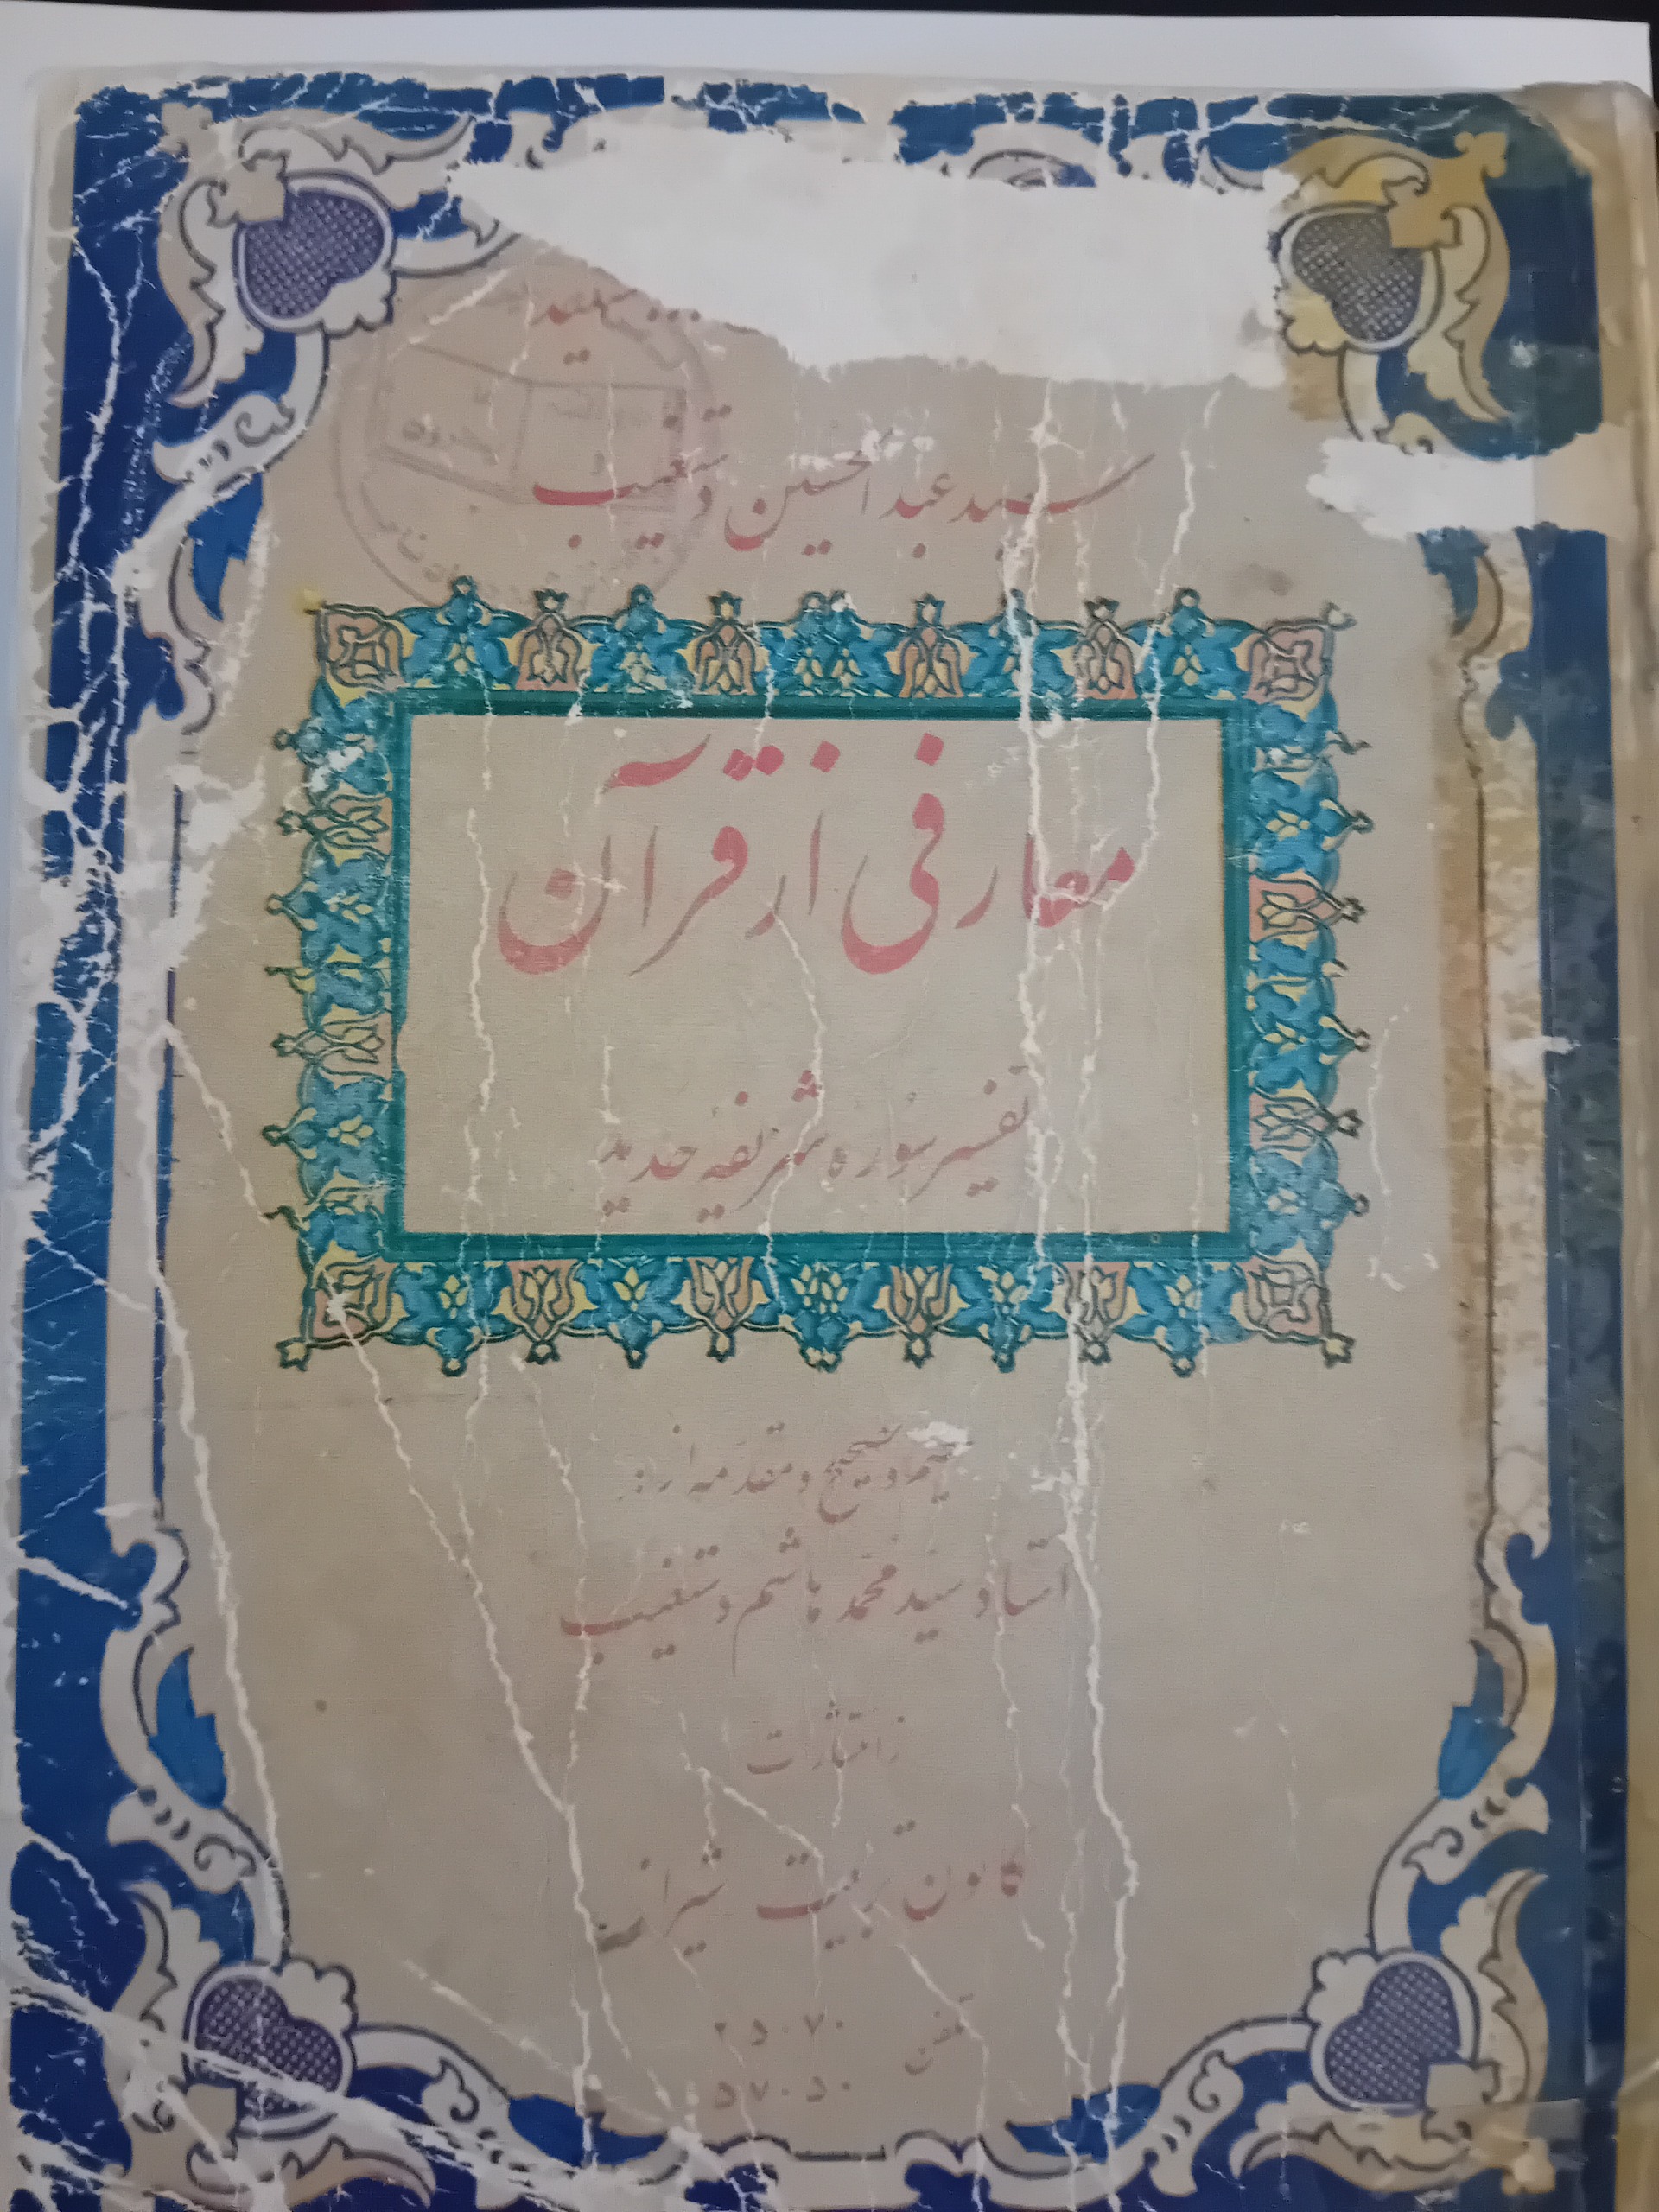 شهید
سید عبدالحسین دستغیب
معارفی از قرآن
تفسیر سوره شریفه حدید
و تصحیح و مقدمه از:
استاد سید محمد هاشم دستغیب
از انتشارات
کانون تربیت شیراز
تلفن ۲۵۰۷۰
۵۷۰۵۰